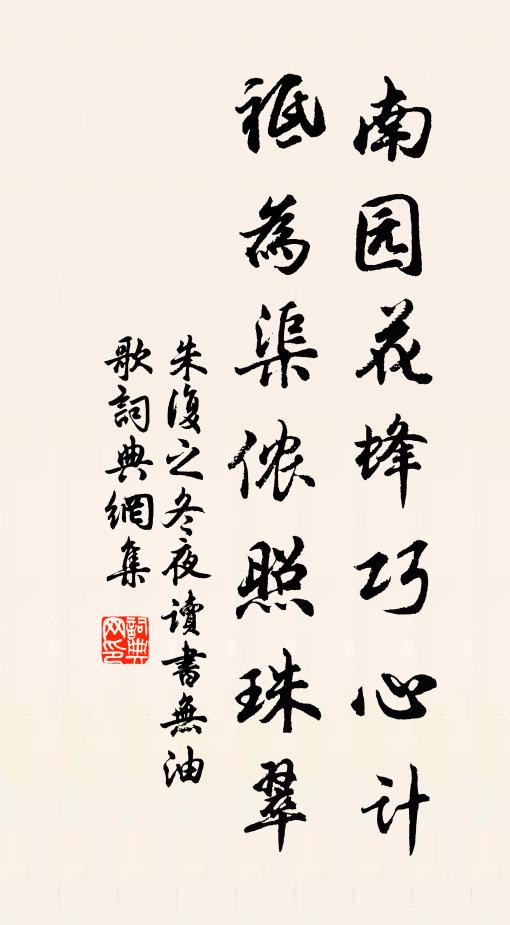 南园花蜂巧心计
祗為渠侬照珠翠
朱復之冬夜讀書無油
歌詞典網集
詞典网印